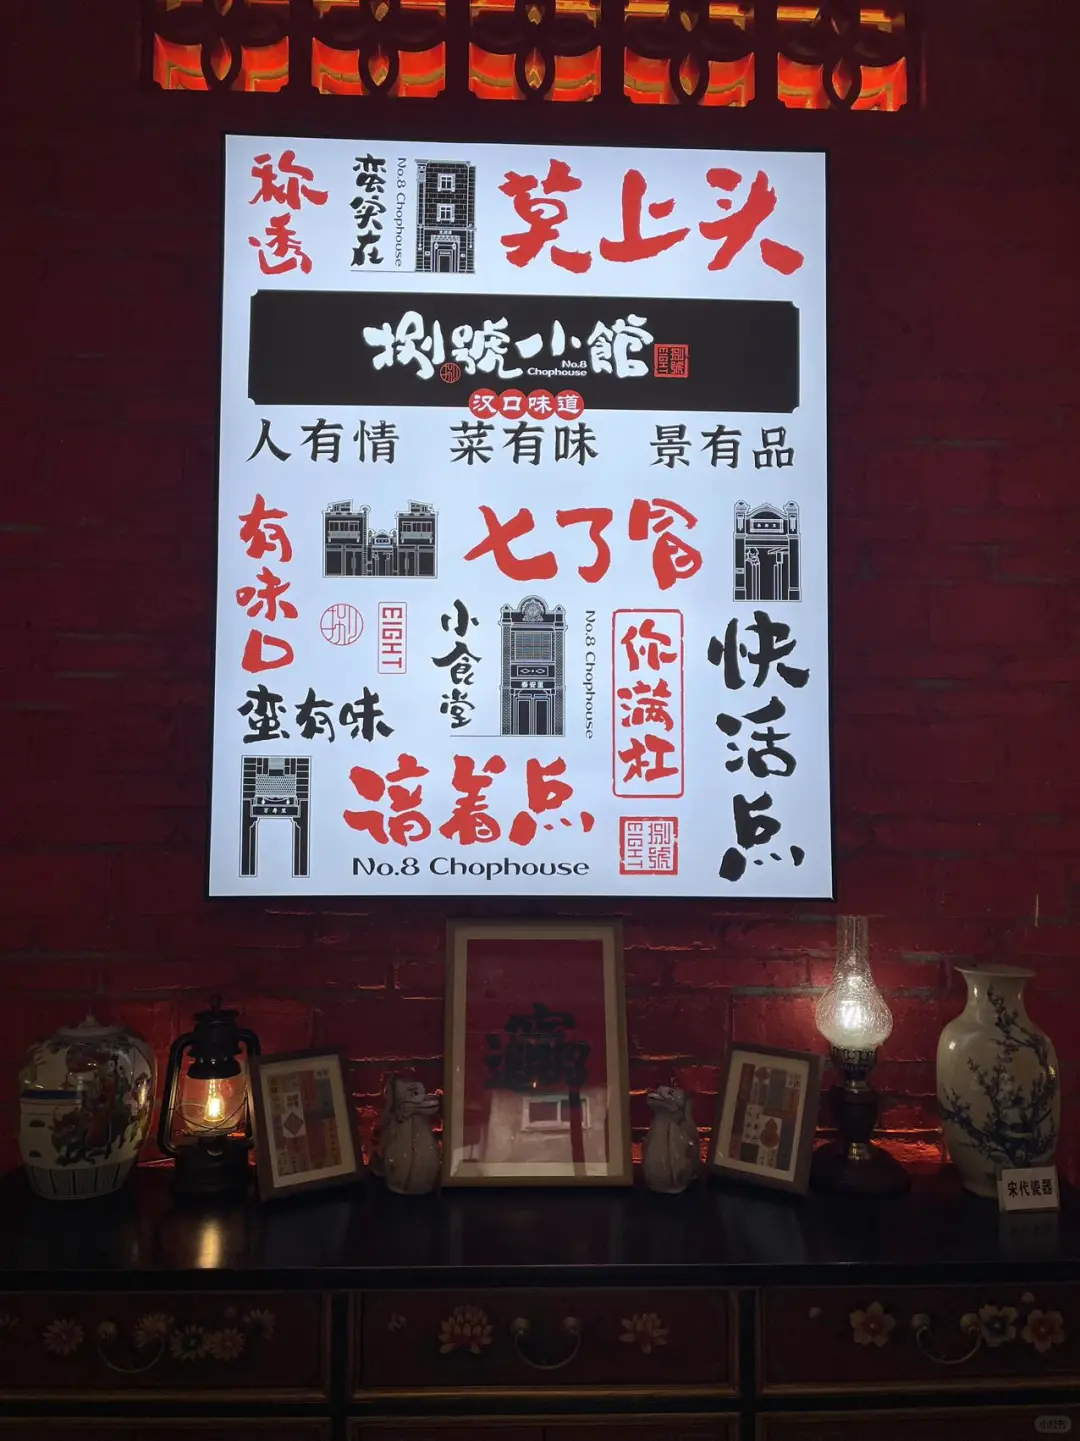 称透
蛮实在
No.8 Chophouse
莫上头
捌號小館
No.8
Chophouse
捌
捌號
EIGHT
汉口味道
人有情 菜有味 景有品
有味口
七了冒
捌
EIGHT
小食堂
泰安里
No.8 Chophouse
你满杠
快活点
蛮有味
万寿里
谙着点
No.8 Chophouse
捌號
EIGHT
宋代瓷器